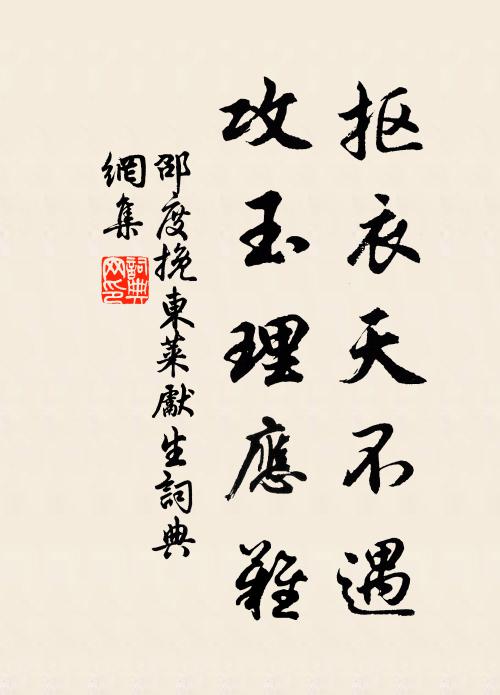 抠衣天不遇
攻玉理應難
邵度挽東萊獻生詞典
網集
詞典網印